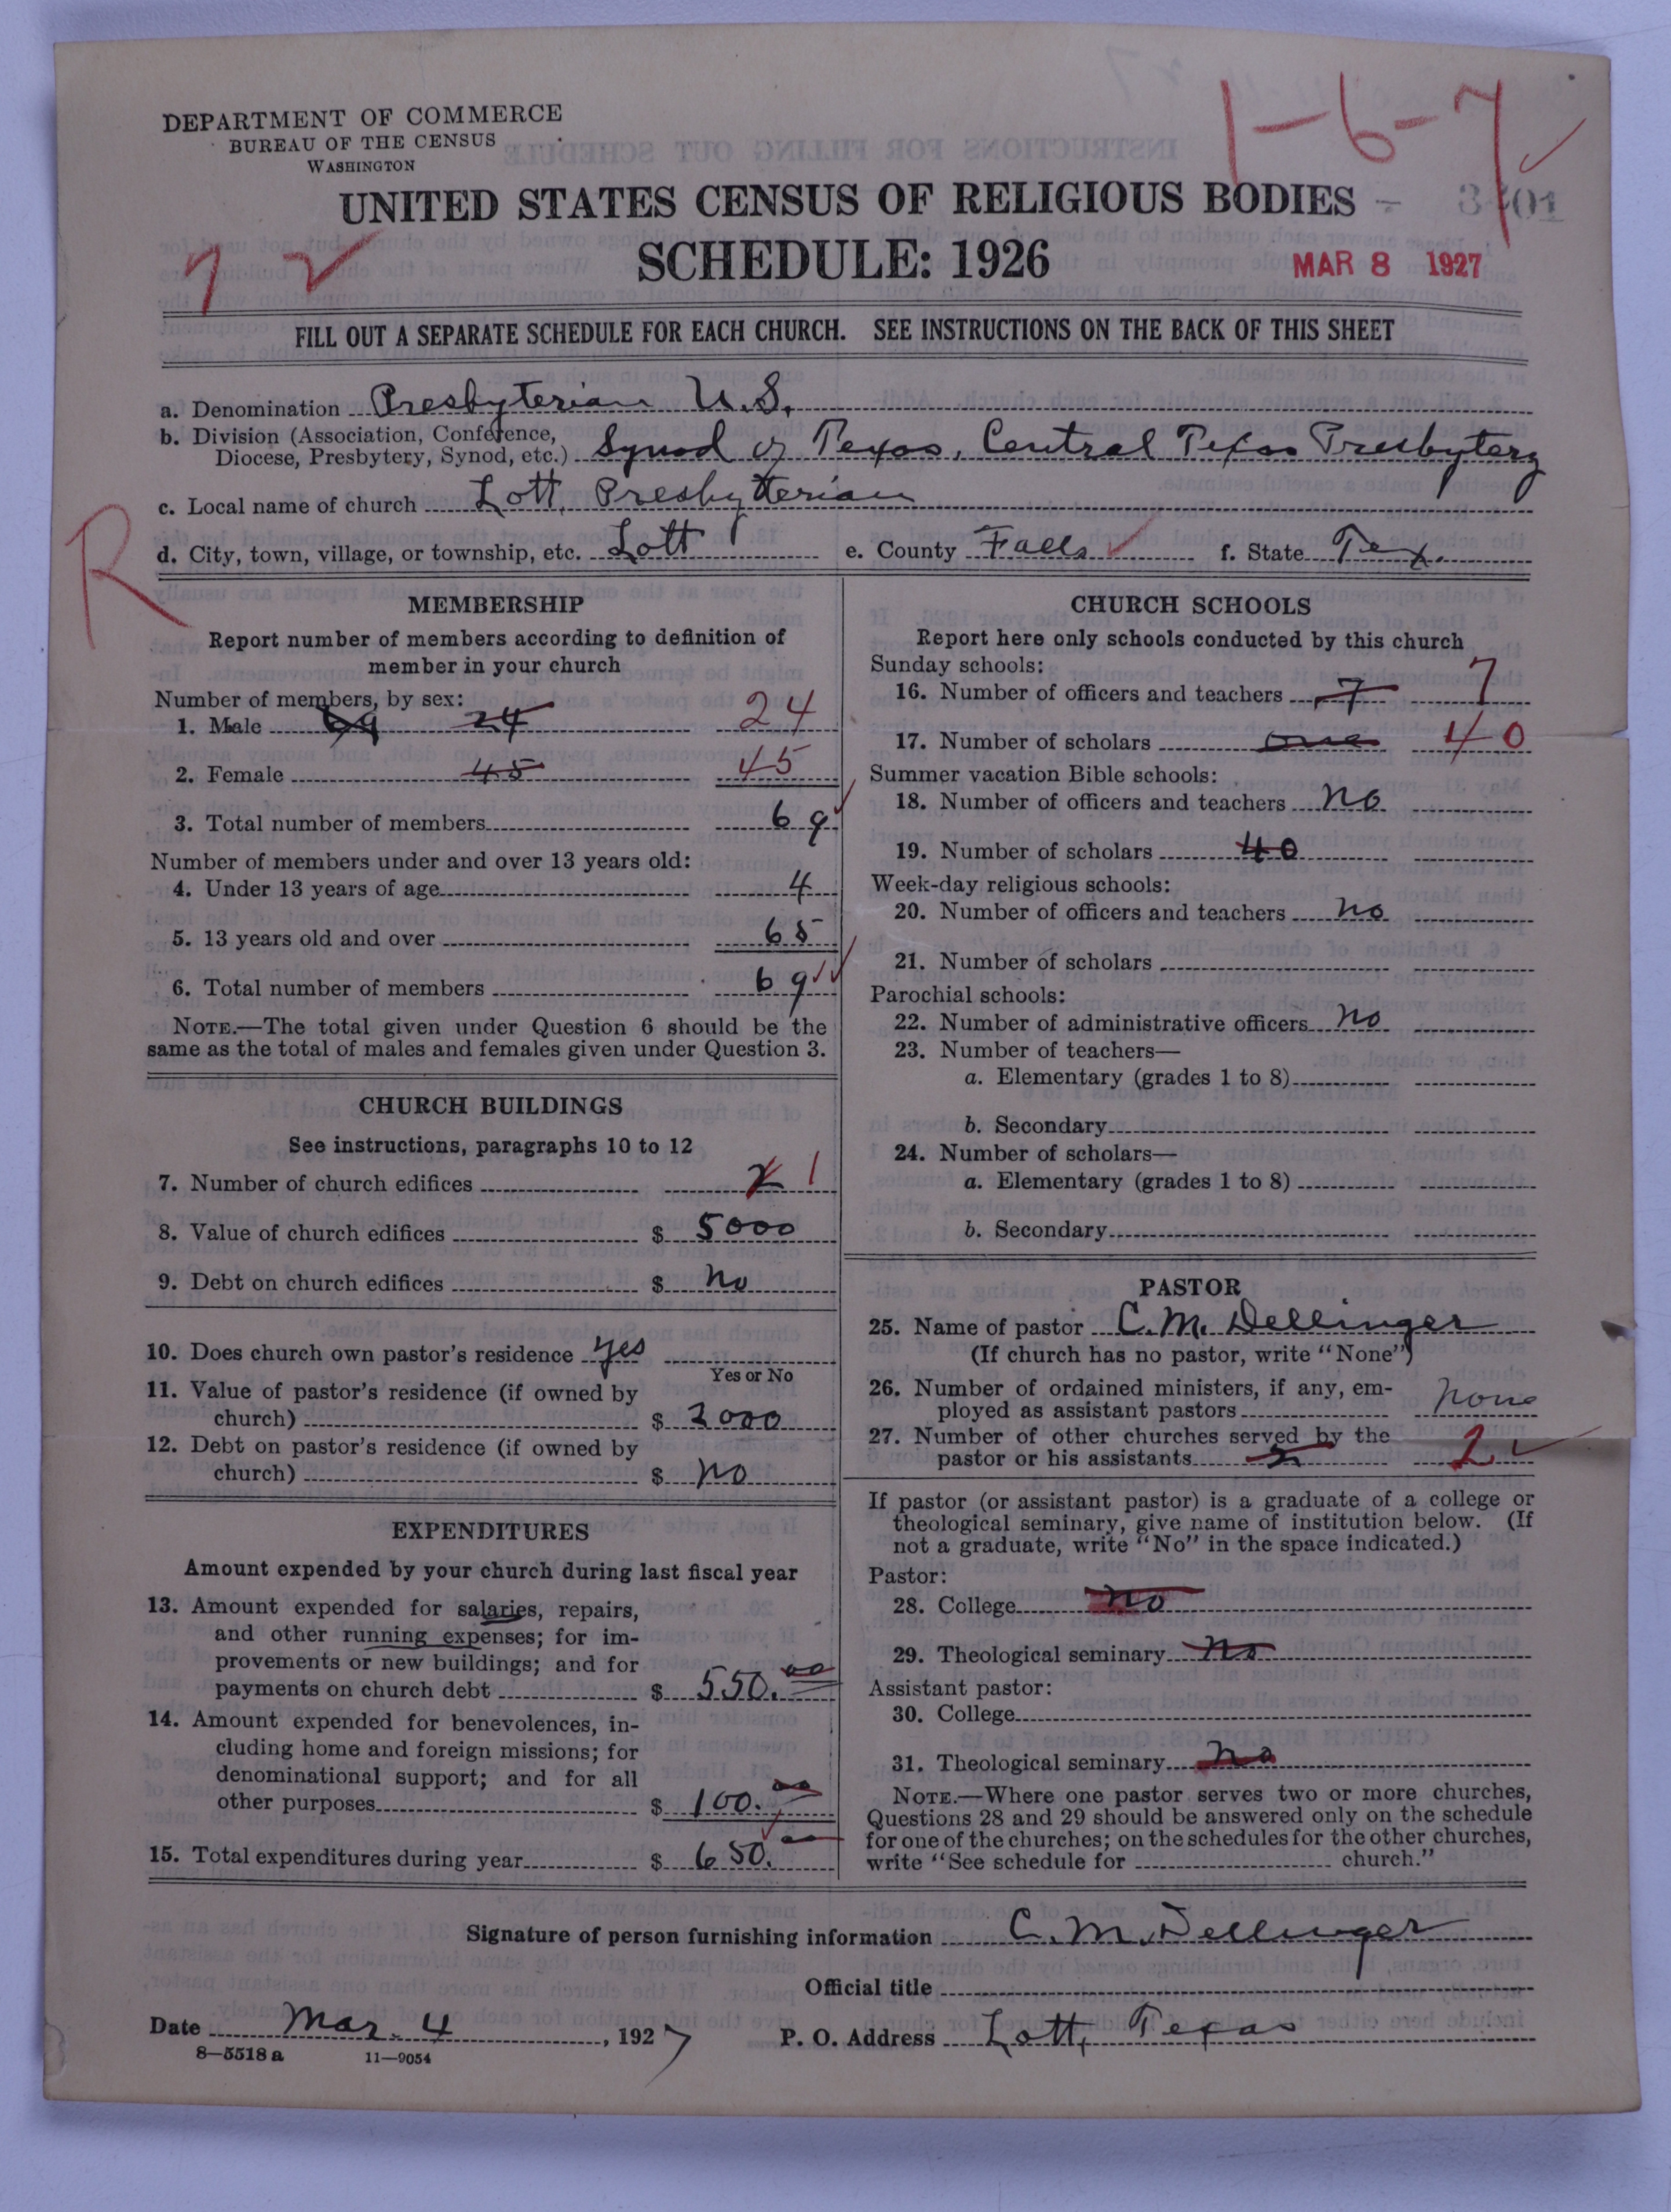 1-6-7
DEPARTMENT OF COMMERCE
BUREAU OF THE CENSUS
WASHINGTON
UNITED STATES CENSUS OF RELIGIOUS BODIES
SCHEDULE: 1926
MAR 8 1927
FILL OUT A SEPARATE SCHEDULE FOR EACH CHURCH. SEE INSTRUCTIONS ON THE BACK OF THIS SHEET
a. Denomination Presbyterian U.S.
b. Division (Association, Conference,
Diocese, Presbytery, Synod, etc.) Synod of Texas, Central Texas Presbytery
c. Local name of church Lott, Presbyterian
R
d. City, town, village, or township, etc. Lott e. County Falls f. State Tex.
MEMBERSHIP
Report number of members according to definition of
member in your church
Number of members, by sex:
1. Male 69 24 24
2. Female 45 45
3. Total number of members 69
Number of members under and over 13 years old:
4. Under 13 years of age 4
5. 13 years old and over 65
6. Total number of members 69
NOTE.—The total given under Question 6 should be the
same as the total of males and females given under Question 3.
CHURCH BUILDINGS
See instructions, paragraphs 10 to 12
7. Number of church edifices 2 1
8. Value of church edifices $ 5000
9. Debt on church edifices $ no
10. Does church own pastor's residence yes
Yes or No
11. Value of pastor's residence (if owned by
church) $ 2000
12. Debt on pastor's residence (if owned by
church) $ no
EXPENDITURES
Amount expended by your church during last fiscal year
13. Amount expended for salaries, repairs,
and other running expenses; for im-
provements or new buildings; and for
payments on church debt $ 550.00
14. Amount expended for benevolences, in-
cluding home and foreign missions; for
denominational support; and for all
other purposes $ 100.00
15. Total expenditures during year $ 650.
CHURCH SCHOOLS
Report here only schools conducted by this church
Sunday schools:
16. Number of officers and teachers 7 7
17. Number of scholars one 40
Summer vacation Bible schools:
18. Number of officers and teachers no
19. Number of scholars 40
Week-day religious schools:
20. Number of officers and teachers no
21. Number of scholars
Parochial schools:
22. Number of administrative officers no
23. Number of teachers—
a. Elementary (grades 1 to 8)
b. Secondary
24. Number of scholars—
a. Elementary (grades 1 to 8)
b. Secondary
PASTOR
25. Name of pastor C. M. Dellinger
(If church has no pastor, write "None")
26. Number of ordained ministers, if any, em-
ployed as assistant pastors none
27. Number of other churches served by the
pastor or his assistants 2 2
If pastor (or assistant pastor) is a graduate of a college or
theological seminary, give name of institution below. (If
not a graduate, write "No" in the space indicated.)
Pastor:
28. College no
29. Theological seminary no
Assistant pastor:
30. College
31. Theological seminary no
NOTE.—Where one pastor serves two or more churches,
Questions 28 and 29 should be answered only on the schedule
for one of the churches; on the schedules for the other churches,
write "See schedule for church."
Signature of person furnishing information C. M. Dellinger
Official title
Date Mar. 4, 1927 P. O. Address Lott, Texas
8—5518 a 11—9054